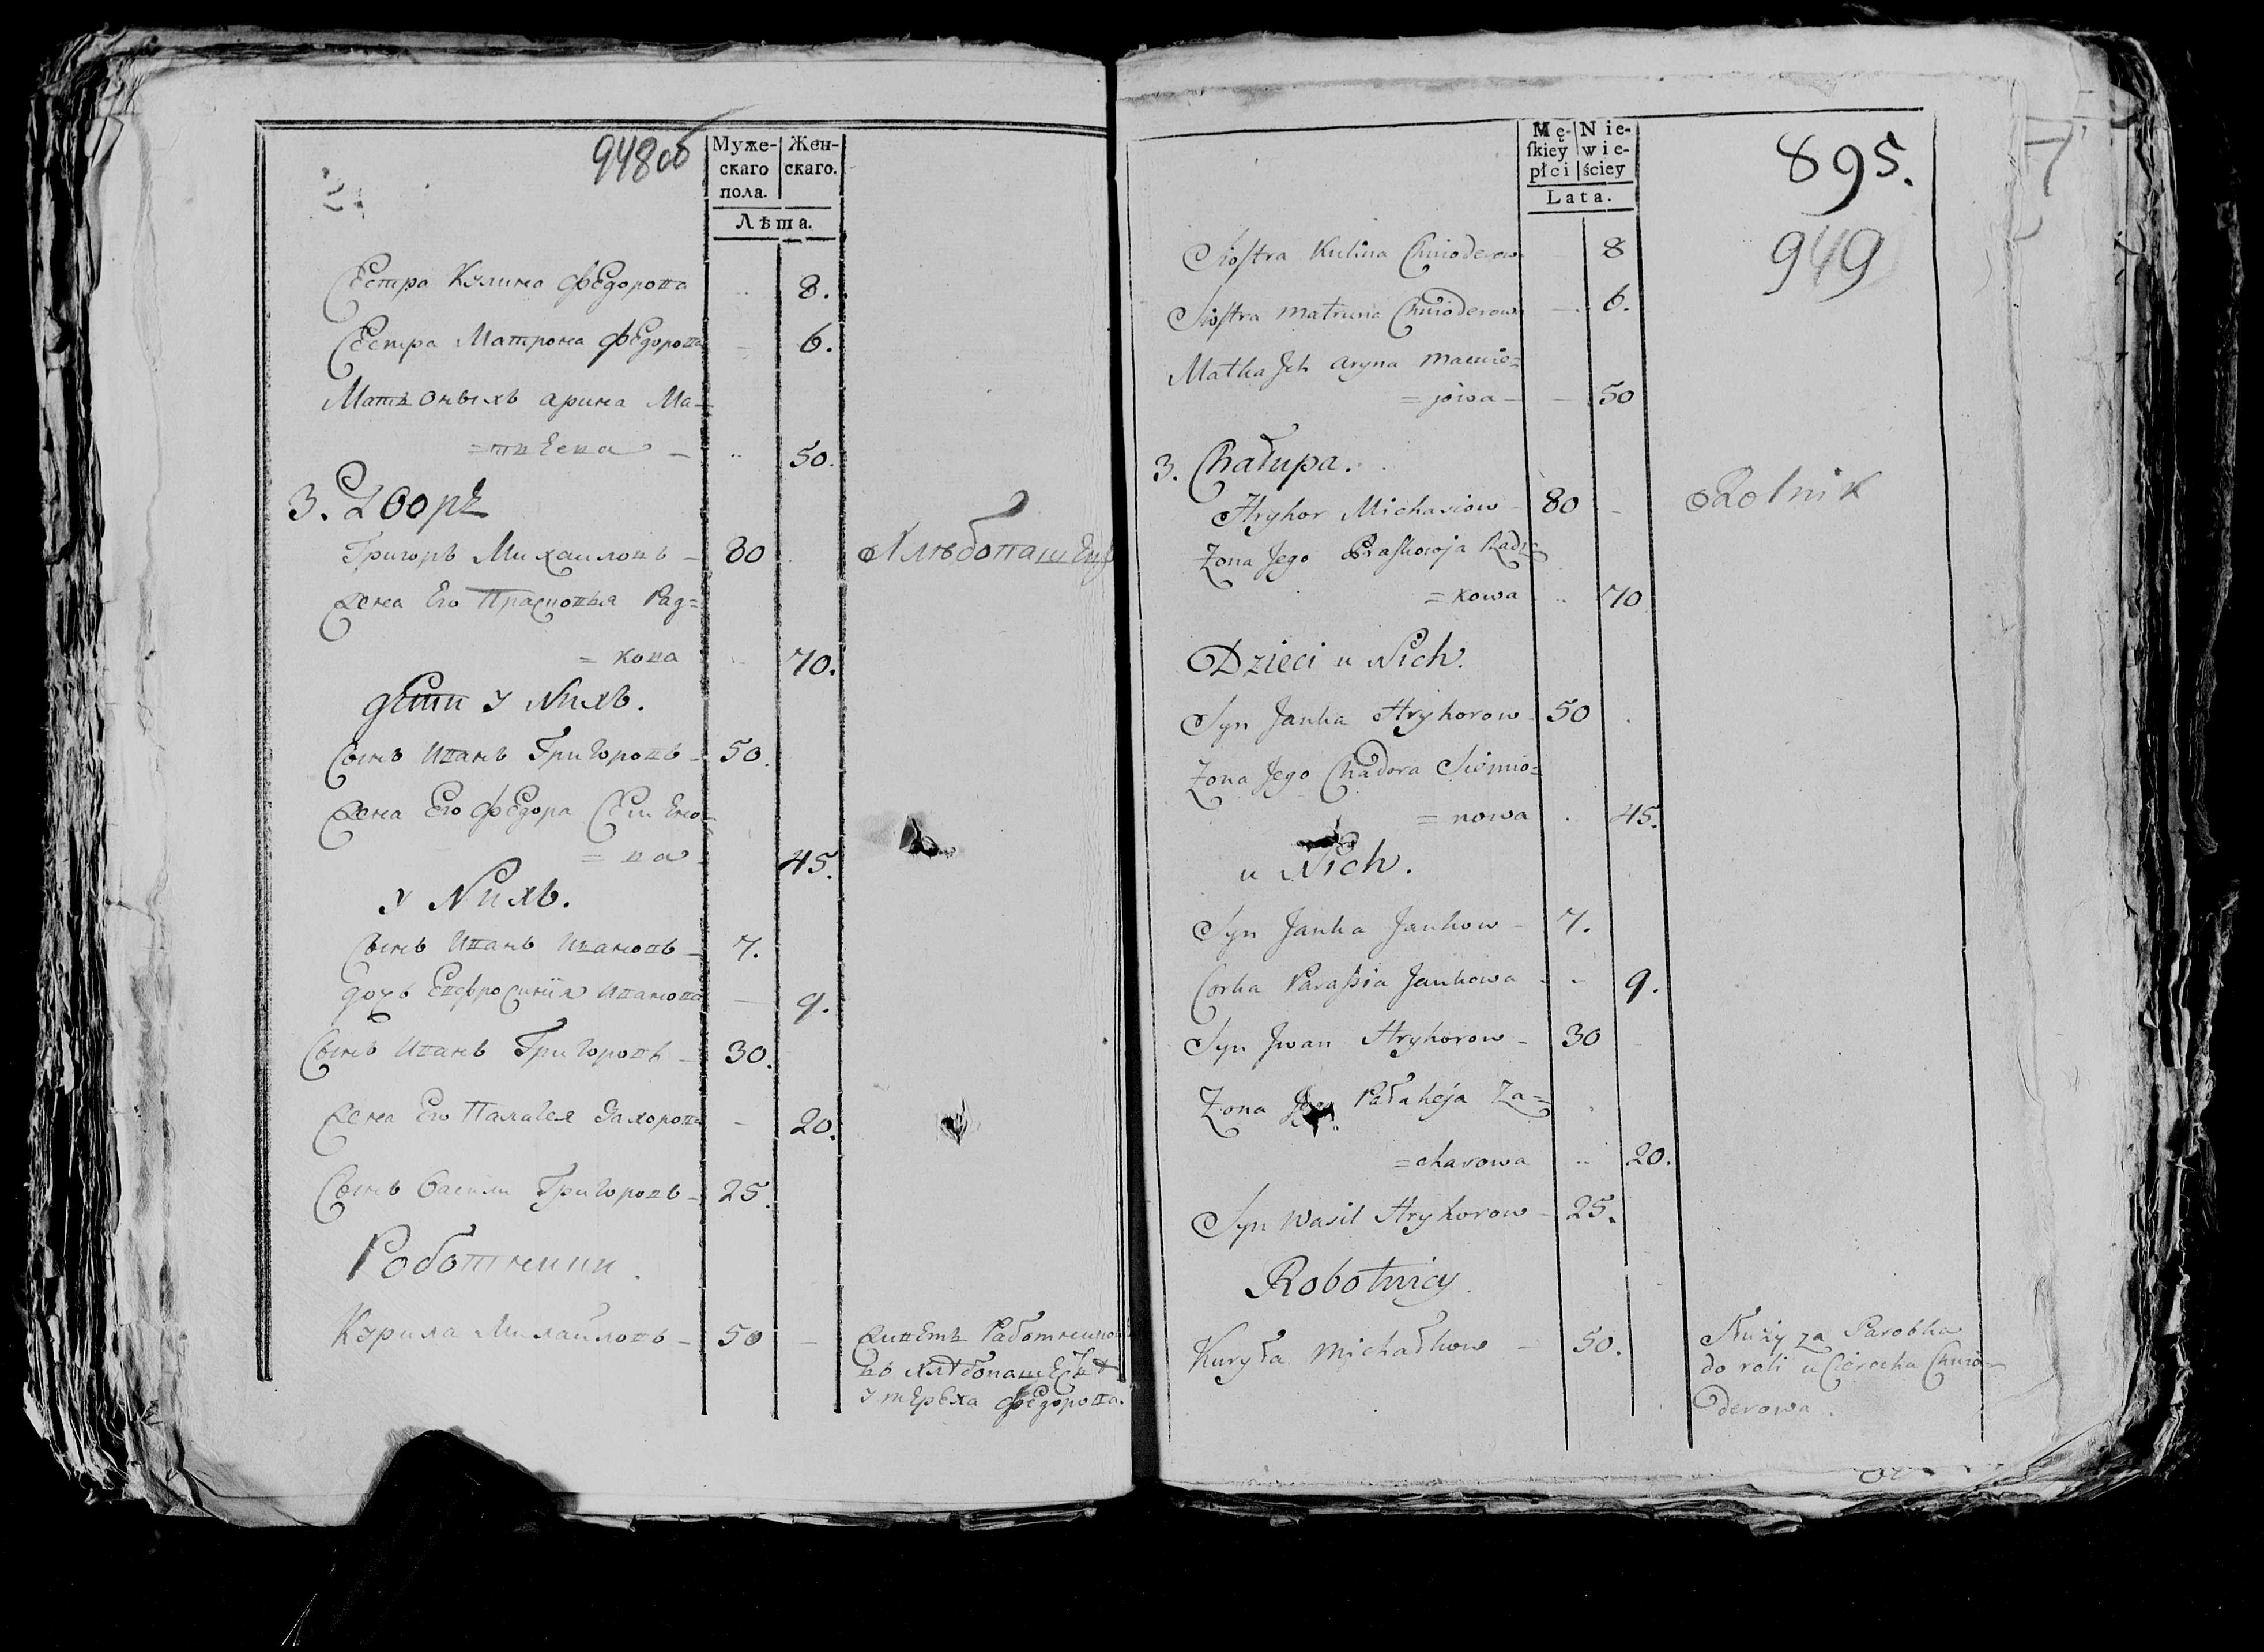 948об
Муже-
скаго
пола.
Жен-
скаго.
Лѣта.
Сестра Кулина Федорова 8.
Сестра Матрона Федорова 6.
Мать оныхъ Арина Ма-
=твеева 50.
3. Дворъ
Григоръ Михаиловъ 80 Хлѣбопашец
Жена Его Прасковья Рад=
=кова 70.
Дети у Nихъ.
Сынъ Иванъ Григоровъ 50.
Жена Его Федора Семено-
=ва 45.
у Nихъ.
Сынъ Иванъ Ивановъ 7.
дочь Евфросиния Иванова 9.
Сынъ Иванъ Григоровъ 30.
Жена Его Палагея Захорова 20.
Сынъ Васили Григоровъ 25.
Роботники.
Курила Михайловъ 50 Живетъ Работником
въ хлѣбопашестве
у терѣха Федорова.
Mę-
skiey
płci
Nie-
wie-
ściey
Lata.
895.
949
Siostra Kulina Chwioderowa 8
Siostra Matruna Chwioderowa 6.
Matka Jch Aryna Macwie=
=jowa 50
3. Chałupa.
Hryhor Michasiow 80 Rolnik
Żona Jego Praskowja Rad=
=kowa 70
Dzieci u Nich.
Syn Janka Hryhorow 50
Żona Jego Chadora Siemio=
=nowa 45.
u Nich.
Syn Janka Jankow 7.
Corka Parasia Jankowa 9.
Syn Jwan Hryhorow 30
Żona Jego Pałaheja Za=
=charowa 20.
Syn Wasil Hryhorow 25.
Robotnicy.
Kuryła Michałkow 50. Służy za Parobka
do roli u Cierecha Chwio-
derowa.